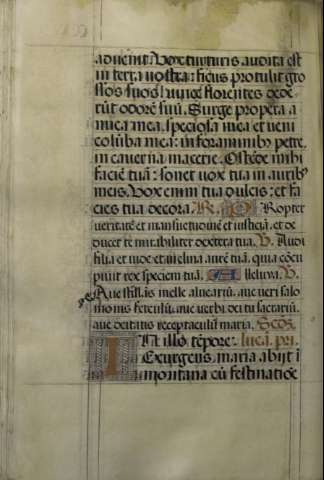 advenit. Vox turturis audita est
in terra nostra: ficus protulit gro
ssos suos: vinee florentes dede
rūt odorē suū. Surge propera a
mica mea. speciosa mea et veni
colūba mea: in foraminibꝫ petre.
in caverna macerie. Ostēde mihi
faciē tuā: sonet vox tua in auribꝰ
meis. Vox enim tua dulcis: et fa
cies tua decora. R. Propter
veritatē et mansuetudinē et iusticiā. et de
ducet te mirabiliter dextera tua. V. Audi
filia et vide et inclina aurē tuā. quia cōcu
pivit rex speciem tuā. Alleluya. V.
Ave stillās melle alvearīū. ave veri salo
monis ferculū. ave verbi dei tu sacrariū.
ave deitatis receptaculū maria. Scdm.
In illo tēpore: lucā. pri.
Exurgens maria abijt ī
montana cū festinatiōe